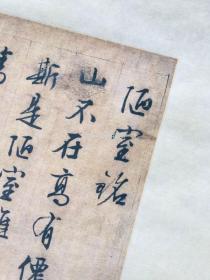 陋室銘
山不在高有僊
斯是陋室惟